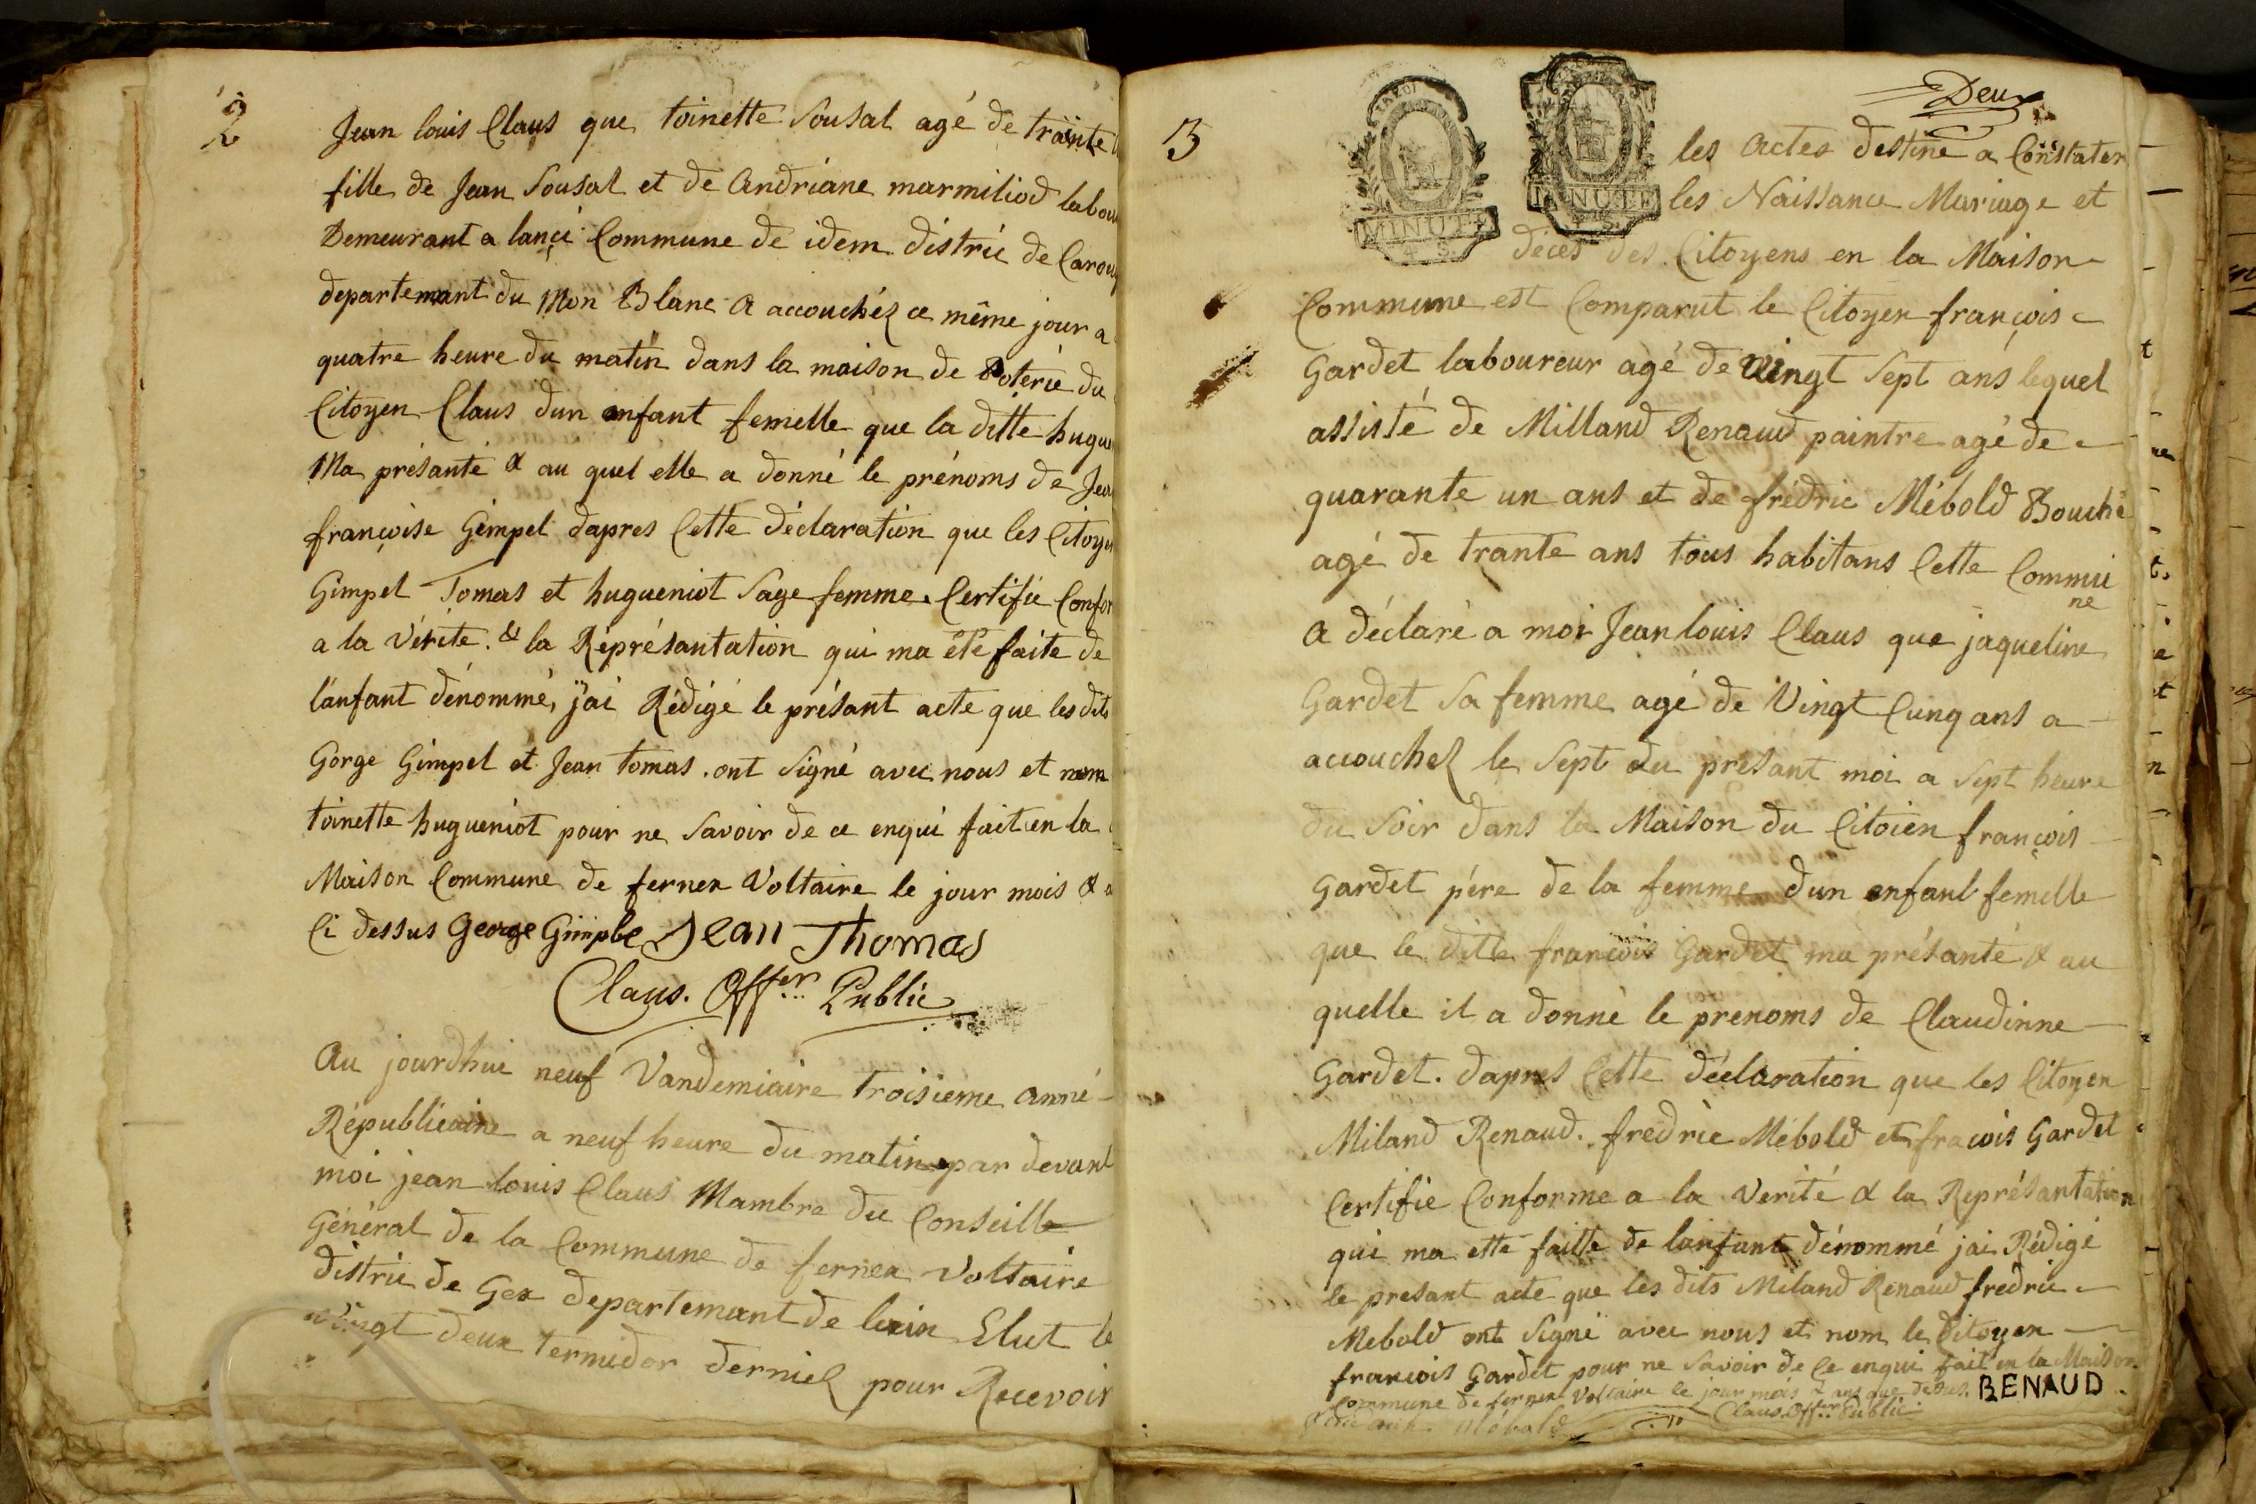 2
Jean louis Claus que toinette Sousal agé de trainte
fille de Jean Sousal et de Andriane marmiliod
Demeurant a lanci Commune de idem distric de
departemant du Mon Blanc a accouchéz ce même jour a
quatre heure du matin dans la maison de Poterie du
Citoyen Claus dun enfant femelle que la ditte
Ma présante & au quel elle a donné le prénoms de
françoise Gimpel dapres Cette déclaration que les
Gimpel Tomas et hugueniot Sage femme Certifie
a la Vérité. & la Réprésantation qui ma été faite de
l'anfant dénommé, j'ai Rédigé le présant acte que les dits
Gorge Gimpel et Jean tomas. ont Signé avec nous et nom
toinette hugueniot pour ne Savoir de ce enqui fait en la
Maison Commune de fernex Voltaire le jour mois &
Ci dessus George Gimple Jean Thomas
Claus. Offer Public
Au jourdhui neuf Vandemiaire troisieme anné
Républicaine a neuf heure du matin par devant
moi jean louis Claus Mambre du Conseille
Général de la Commune de fernex Voltaire
distric de Gex departemant de lain Elut le
vingt deux termidor derniez pour Recevoir
3
MINUTE
4 S.
MINUTE
Deux
les actes destiné a Constater
les Naissance Mariage et
décès des Citoyens en la Maison
Commune est Comparut le Citoyen françois
Gardet laboureur agé de Vingt Sept ans lequel
assisté de Milland Renaud paintre agé de
quarante un ans et de frédric Mébold Bouché
agé de trante ans tous habitans Cette Commu
ne
a déclaré a moi Jean louis Claus que jaqueline
Gardet Sa femme agé de Vingt Cinq ans a
accouchez le Sept du présant moi a Sept heure
du Soir dans la Maison du Citoien françois
Gardet pére de la femme dun enfant femelle
que le ditte françois Gardet ma présanté & au
quelle il a donné le prenoms de Claudinne
Gardet. dapres Cette déclaration que les Citoyen
Miland Renaud. fredric Mébold et fracois Gardet
Certifie Conforme a la Verité & la Représantation
qui ma etté faitte de lanfant dénommé jai Rédigé
le presant acte que les dits Miland Renaud frédric
Mebold ont Signé avec nous et nom le Citoyen
francois Gardet pour ne Savoir de Ce enqui fait en la Maison
Commune de fernex Voltaire le jour mois & ans que dessus. RENAUD
Mébold Claus. Offer Public